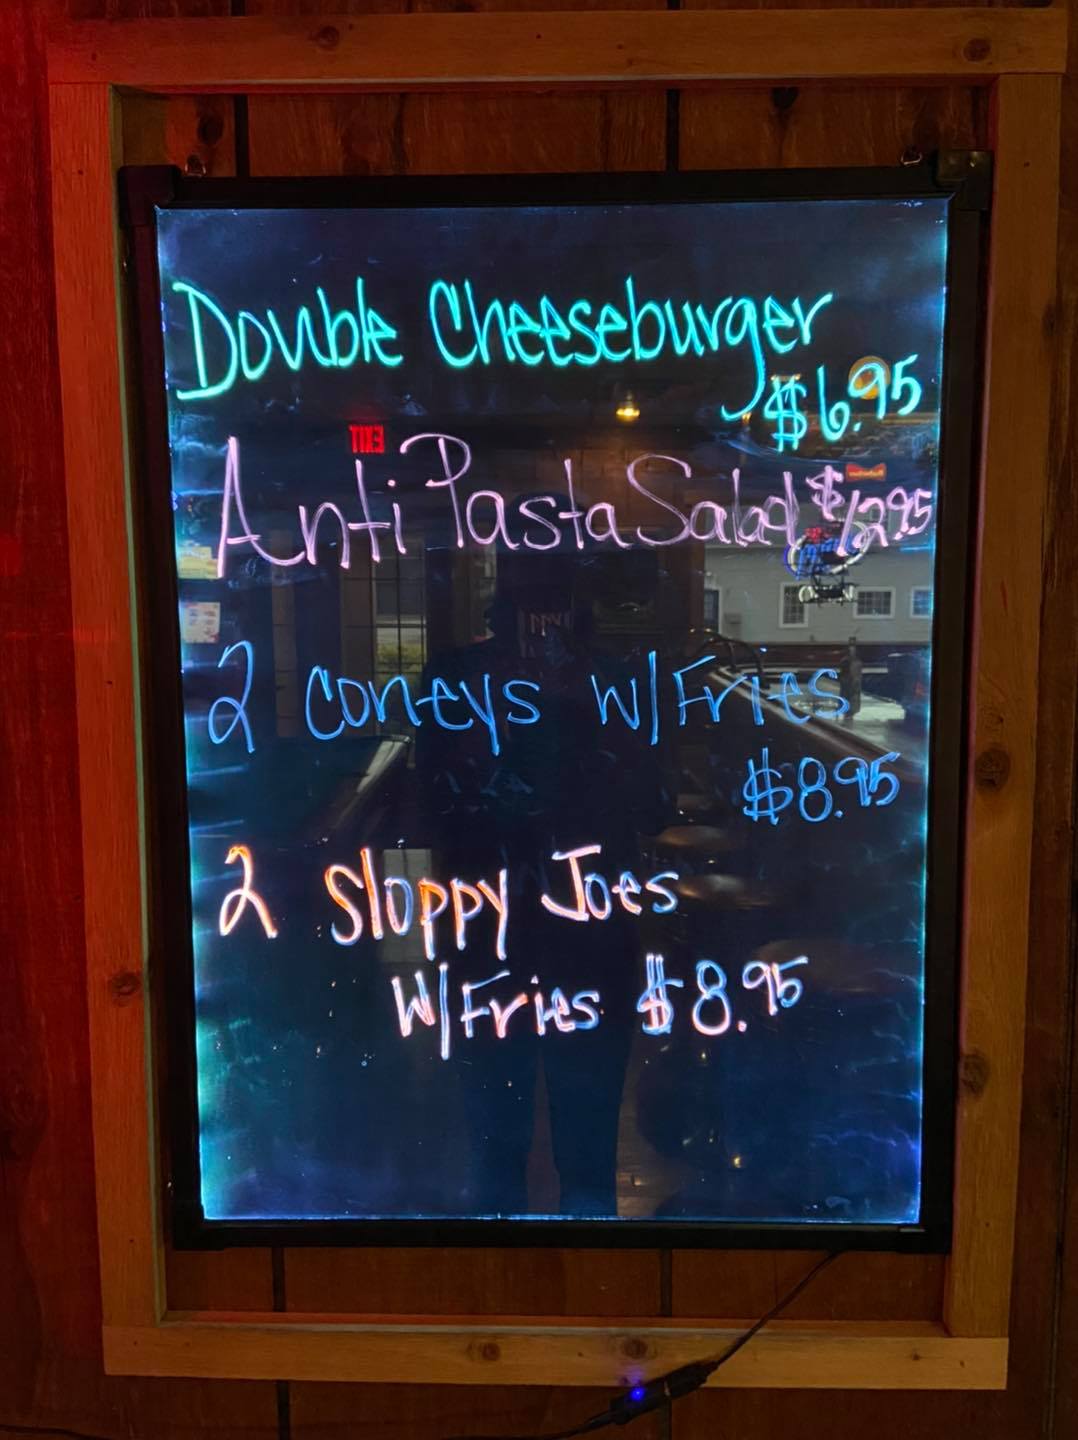 Double Cheeseburger
$6.95
Anti Pasta Salad $12.95
2 Coneys w/Fries
$8.95
2 Sloppy Joes
w/Fries $8.95
EXIT